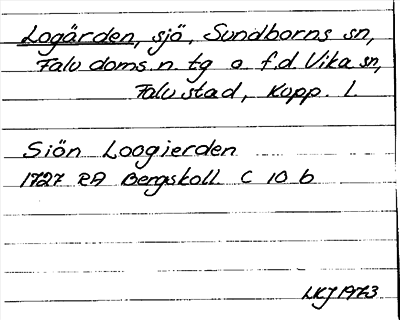 Logärden, sjö, Sundborns sn,
Falu doms.n. tg o. f.d. Vika sn,
Falu stad, Kopp. l.
Siön Loogierden
1727 RA Bergskoll. C 10 b
LKJ 1973